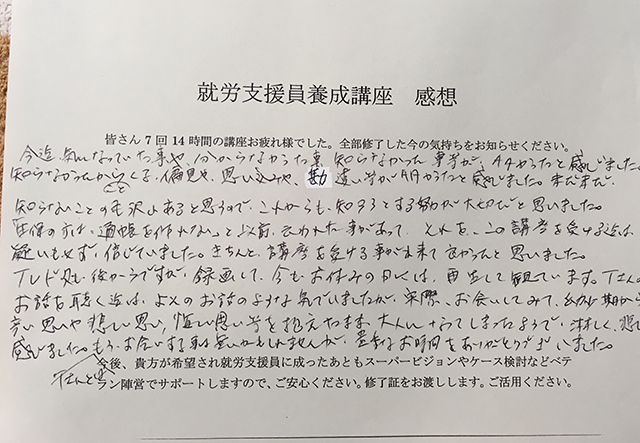 就労支援員養成講座　感想
皆さん7回14時間の講座お疲れ様でした。全部修了した今の気持ちをお知らせください。
今迄、気になっていた事や、分からなかった事、知らなかった事等が、と感じました。
知らなかったからくる、偏見や、思い込みや、勘違い等があったと感じました。まだまだ、
知らないことの沢山あると思うので、これからも、知ろうとする努力が大切だと思いました。
通帳を作れない」と以前、言われた事があって、それを、この講座を受ける迄は、
疑いもせず、信じていました。きちんと、講座を受ける事が出来て良かったと思いました。
後からですが、録画して、今もお休みの日には、再生して観ています。Tさん
お話を聴く迄は、よそのお話のような気でいましたが、実際、お会いしてみて、幼少期から
辛い思いや悲しい思い、悔しい思い等を抱えたまま、大人になってしまったようで、淋しく、悲し
感じました。もう、お会いする事は無いかもしれませんが、貴重なお時間をありがとうございました。
今後、貴方が希望され就労支援員に成ったあともスーパービジョンやケース検討などベテ
ラン陣営でサポートしますので、ご安心ください。修了証をお渡しします。ご活用ください。